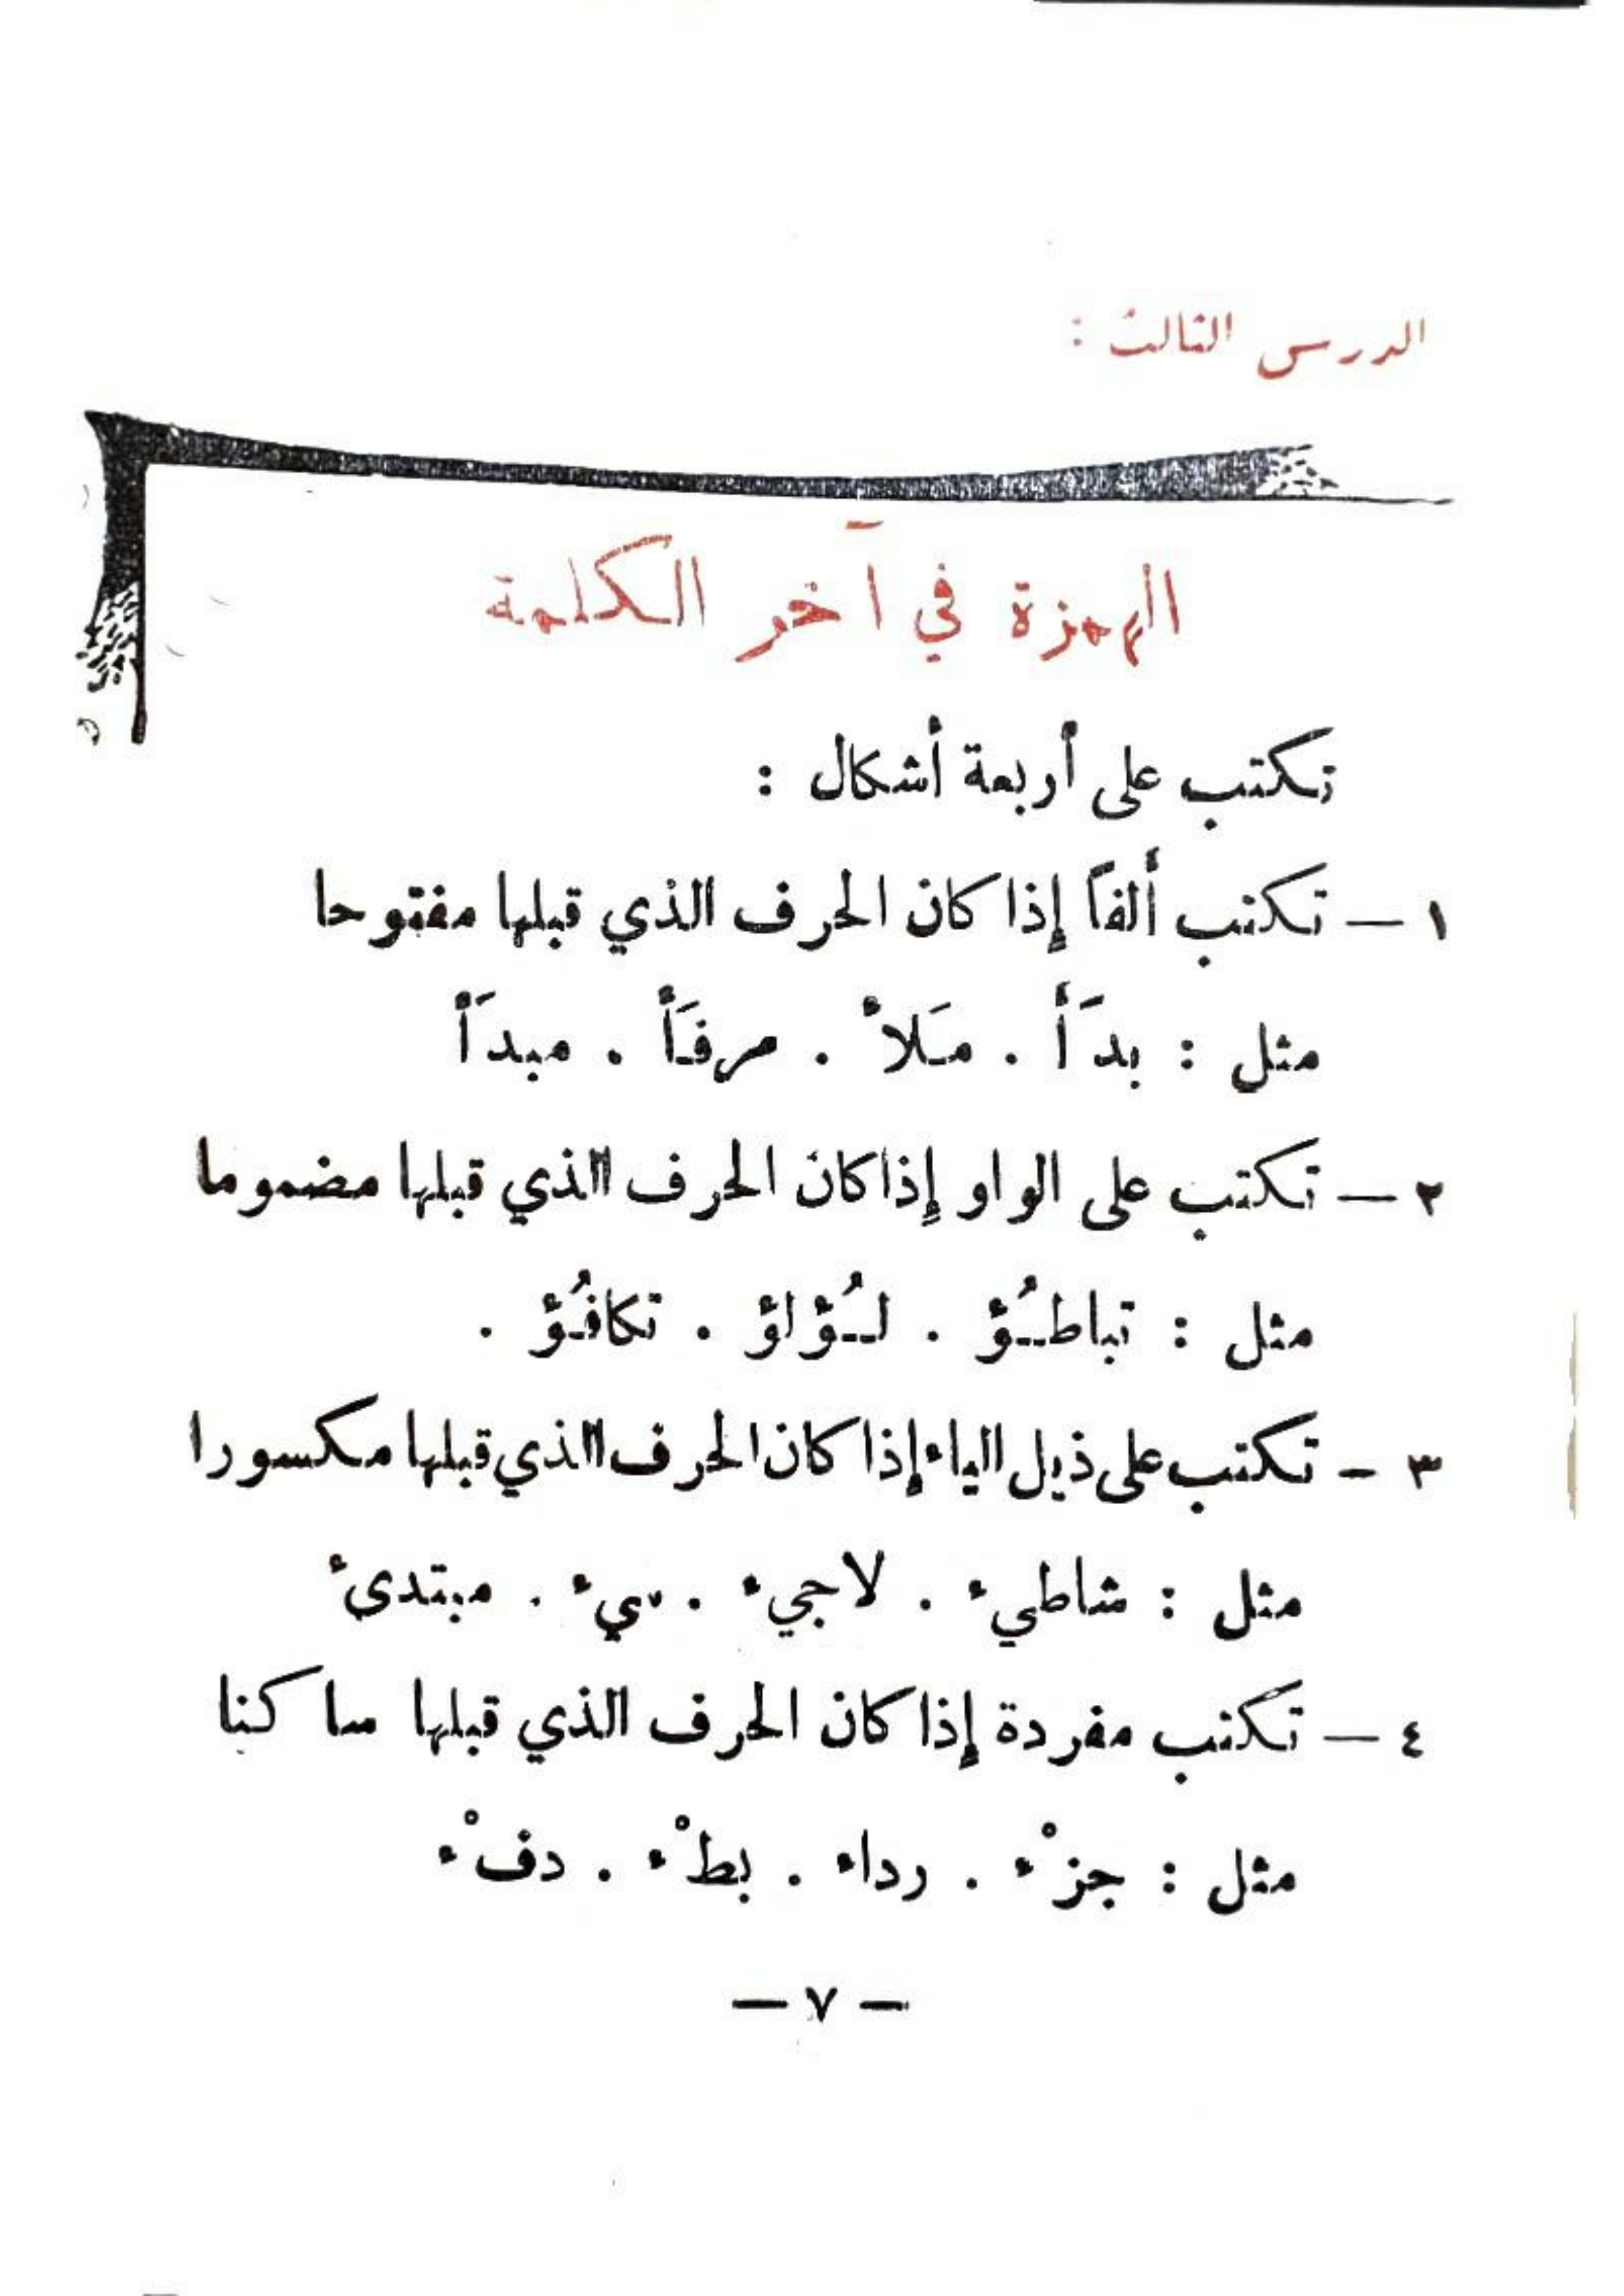 الدرس الثالث :
الهمزة في آخر الكلمة
تكتب على أربعة أشكال :
١ — تكتب ألفاً إذا كان الحرف الذي قبلها مفتوحا
مثل : بدَأ . مَلأ . مرفَأ . مبدَأ
٢ — تكتب على الواو إذا كان الحرف الذي قبلها مضموما
مثل : تباطُـؤ . لُـؤلؤ . تكافُؤ .
٣ - تكتب على ذيل الياء إذا كان الحرف الذي قبلها مكسورا
مثل : شاطيء . لاجيء . . مبتدئ
٤ — تكتب مفردة إذا كان الحرف الذي قبلها ساكنا
مثل : جزْء . رداء . بطْء . دفْء
— ٧ —